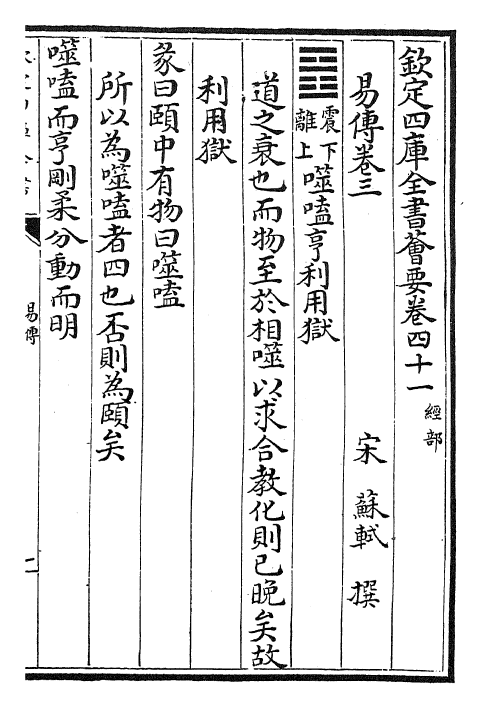 欽定四庫全書薈要卷四十一 經部
易傳卷三 宋 蘇軾 撰
震下離上 噬嗑亨利用獄
道之衰也而物至於相噬以求合教化則已晚矣故
利用獄
彖曰頤中有物曰噬嗑
所以為噬嗑者四也否則為頤矣
噬嗑而亨剛柔分動而明
易傳